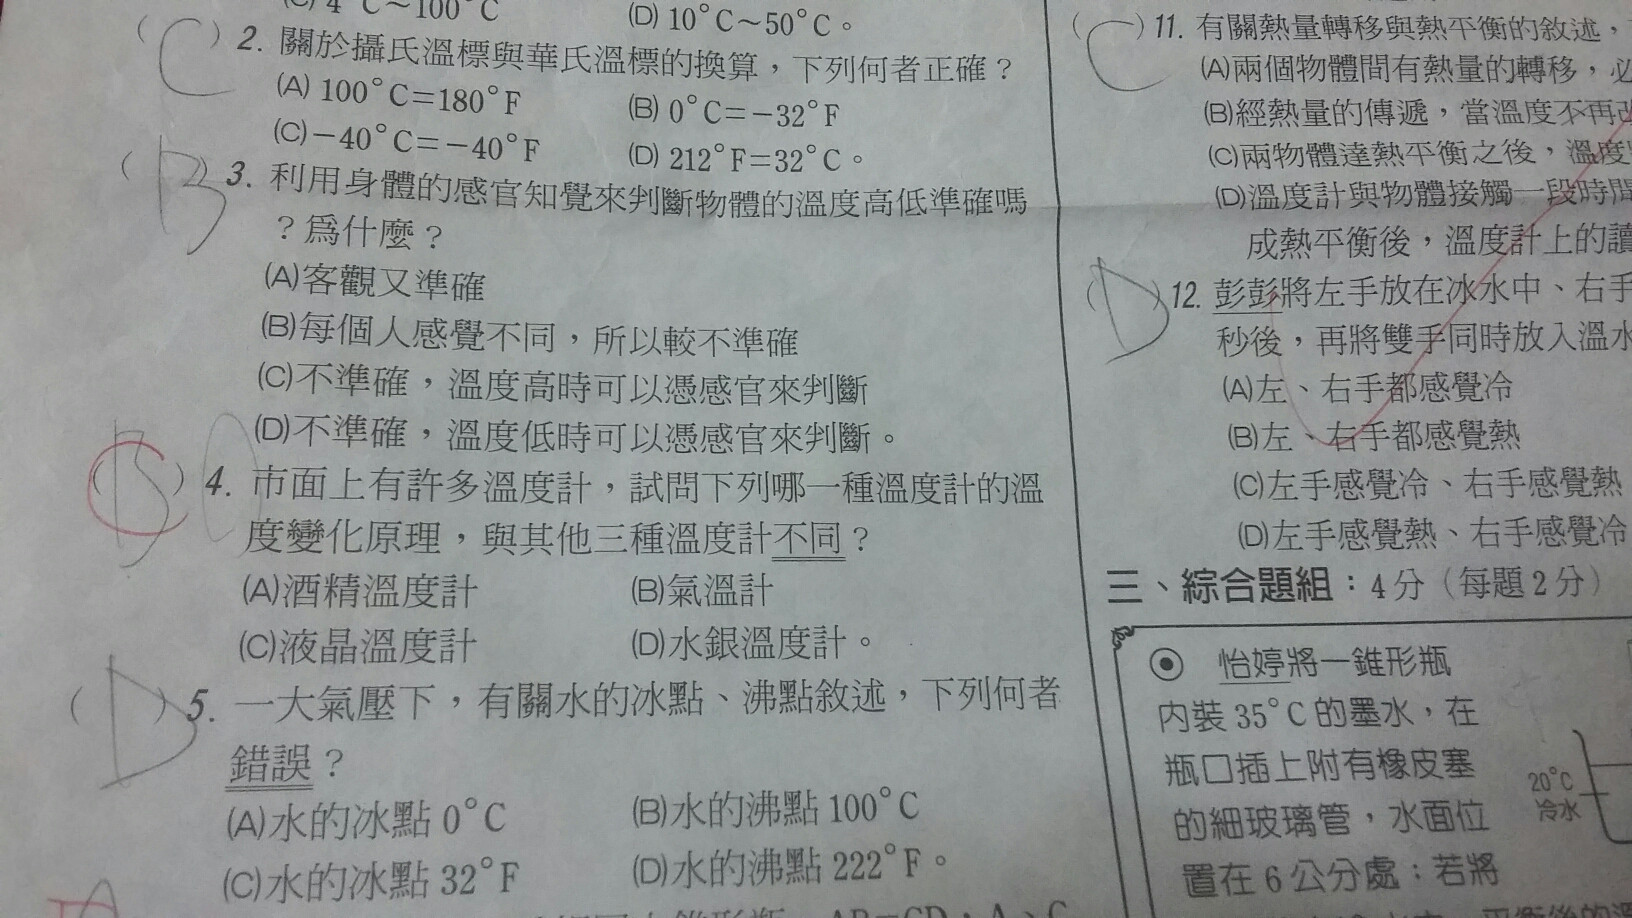 (C) 4°C～100°C
(D) 10°C～50°C。
(C) 2. 關於攝氏溫標與華氏溫標的換算，下列何者正確？
(A) 100°C=180°F
(B) 0°C=−32°F
(C) −40°C=−40°F
(D) 212°F=32°C。
(B) 3. 利用身體的感官知覺來判斷物體的溫度高低準確嗎
？爲什麼？
(A)客觀又準確
(B)每個人感覺不同，所以較不準確
(C)不準確，溫度高時可以憑感官來判斷
(D)不準確，溫度低時可以憑感官來判斷。
(B) C 4. 市面上有許多溫度計，試問下列哪一種溫度計的溫
度變化原理，與其他三種溫度計不同？
(A)酒精溫度計
(B)氣溫計
(C)液晶溫度計
(D)水銀溫度計。
(D) 5. 一大氣壓下，有關水的冰點、沸點敘述，下列何者
錯誤？
(A)水的冰點 0°C
(B)水的沸點 100°C
(C)水的冰點 32°F
(D)水的沸點 222°F。
(C) 11. 有關熱量轉移與熱平衡的敘述，
(A)兩個物體間有熱量的轉移，必
(B)經熱量的傳遞，當溫度不再改
(C)兩物體達熱平衡之後，溫度
(D)溫度計與物體接觸一段時間
成熱平衡後，溫度計上的讀
(D) 12. 彭彭將左手放在冰水中、右手
秒後，再將雙手同時放入溫水
(A)左、右手都感覺冷
(B)左、右手都感覺熱
(C)左手感覺冷、右手感覺熱
(D)左手感覺熱、右手感覺冷
三、綜合題組：4分（每題2分）
怡婷將一錐形瓶
內裝 35°C 的墨水，在
瓶口插上附有橡皮塞
的細玻璃管，水面位
置在 6 公分處；若將
20°C
冷水